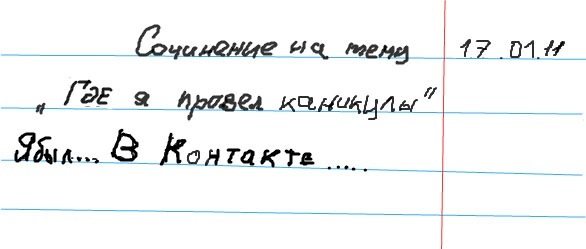 Сочинение на тему 17.01.11
„Где я провел каникулы"
Я был... В Контакте.....